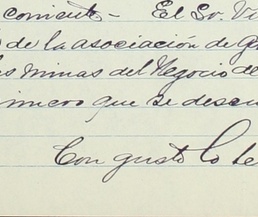 corriente - El Sr. Vi
de la asociación de G
las minas del Negocio de
que se descu
Con gusto lo te